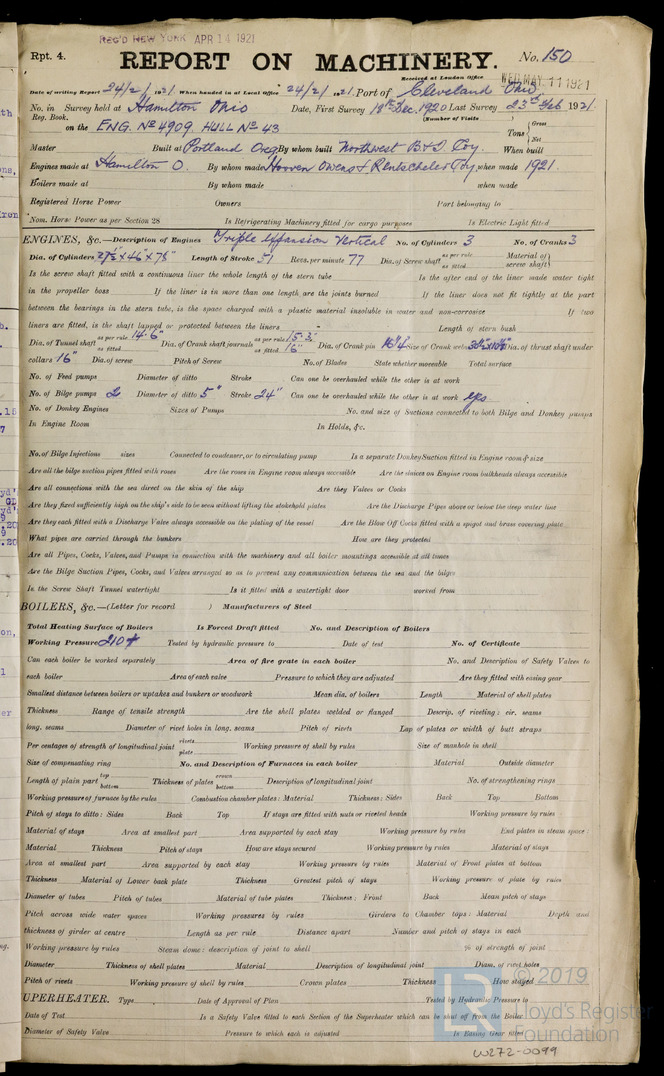 REC'D NEW YORK APR 14 1921
Rpt. 4.
REPORT ON MACHINERY.
No. 150
Received at London Office WED. MAY. 11 1921
Date of writing Report 24/2/ 1921. When handed in at Local Office 24/2/ 1921. Port of Cleveland Ohio.
No. in Survey held at Hamilton Ohio Date, First Survey 18th Dec. 1920 Last Survey 23rd Feb 1921.
Reg. Book. (Number of Visits
on the ENG. No 4909. HULL No 43 Tons { Gross Net
Master Built at Portland Oreg By whom built Northwest B & I Coy. When built
Engines made at Hamilton O. By whom made Hooven Owens & Rentscheler Coy when made 1921.
Boilers made at By whom made when made
Registered Horse Power Owners Port belonging to
Nom. Horse Power as per Section 28 Is Refrigerating Machinery fitted for cargo purposes Is Electric Light fitted
ENGINES, &c.—Description of Engines Triple Expansion Vertical No. of Cylinders 3 No. of Cranks 3
Dia. of Cylinders Length of Stroke 51 Revs. per minute 77 Dia. of Screw shaft as per rule as fitted Material of screw shaft
Is the screw shaft fitted with a continuous liner the whole length of the stern tube Is the after end of the liner made water tight
in the propeller boss If the liner is in more than one length are the joints burned If the liner does not fit tightly at the part
between the bearings in the stern tube, is the space charged with a plastic material insoluble in water and non-corrosive If two
liners are fitted, is the shaft lapped or protected between the liners Length of stern bush
Dia. of Tunnel shaft as per rule 14.6" as fitted Dia. of Crank shaft journals as per rule 15.3" as fitted 16" Dia. of Crank pin Size of Crank webs Dia. of thrust shaft under
collars 16" Dia. of screw Pitch of Screw No. of Blades State whether moveable Total surface
No. of Feed pumps Diameter of ditto Stroke Can one be overhauled while the other is at work
No. of Bilge pumps 2 Diameter of ditto 5" Stroke 24" Can one be overhauled while the other is at work yes.
No. of Donkey Engines Sizes of Pumps No. and size of Suctions connected to both Bilge and Donkey pumps
In Engine Room In Holds, &c.
No. of Bilge Injections sizes Connected to condenser, or to circulating pump Is a separate Donkey Suction fitted in Engine room & size
Are all the bilge suction pipes fitted with roses Are the roses in Engine room always accessible Are the sluices on Engine room bulkheads always accessible
Are all connections with the sea direct on the skin of the ship Are they Valves or Cocks
Are they fixed sufficiently high on the ship's side to be seen without lifting the stokehold plates Are the Discharge Pipes above or below the deep water line
Are they each fitted with a Discharge Valve always accessible on the plating of the vessel Are the Blow Off Cocks fitted with a spigot and brass covering plate
What pipes are carried through the bunkers How are they protected
Are all Pipes, Cocks, Valves, and Pumps in connection with the machinery and all boiler mountings accessible at all times
Are the Bilge Suction Pipes, Cocks, and Valves arranged so as to prevent any communication between the sea and the bilges
Is the Screw Shaft Tunnel watertight Is it fitted with a watertight door worked from
BOILERS, &c.—(Letter for record ) Manufacturers of Steel
Total Heating Surface of Boilers Is Forced Draft fitted No. and Description of Boilers
Working Pressure 210# Tested by hydraulic pressure to Date of test No. of Certificate
Can each boiler be worked separately Area of fire grate in each boiler No. and Description of Safety Valves to
each boiler Area of each valve Pressure to which they are adjusted Are they fitted with easing gear
Smallest distance between boilers or uptakes and bunkers or woodwork Mean dia. of boilers Length Material of shell plates
Thickness Range of tensile strength Are the shell plates welded or flanged Descrip. of riveting: cir. seams
long. seams Diameter of rivet holes in long. seams Pitch of rivets Lap of plates or width of butt straps
Per centages of strength of longitudinal joint rivets plate Working pressure of shell by rules Size of manhole in shell
Size of compensating ring No. and Description of Furnaces in each boiler Material Outside diameter
Length of plain part top bottom Thickness of plates crown bottom Description of longitudinal joint No. of strengthening rings
Working pressure of furnace by the rules Combustion chamber plates: Material Thickness: Sides Back Top Bottom
Pitch of stays to ditto: Sides Back Top If stays are fitted with nuts or riveted heads Working pressure by rules
Material of stays Area at smallest part Area supported by each stay Working pressure by rules End plates in steam space:
Material Thickness Pitch of stays How are stays secured Working pressure by rules Material of stays
Area at smallest part Area supported by each stay Working pressure by rules Material of Front plates at bottom
Thickness Material of Lower back plate Thickness Greatest pitch of stays Working pressure of plate by rules
Diameter of tubes Pitch of tubes Material of tube plates Thickness: Front Back Mean pitch of stays
Pitch across wide water spaces Working pressures by rules Girders to Chamber tops: Material Depth and
thickness of girder at centre Length as per rule Distance apart Number and pitch of stays in each
Working pressure by rules Steam dome: description of joint to shell % of strength of joint
Diameter Thickness of shell plates Material Description of longitudinal joint Diam. of rivet holes
Pitch of rivets Working pressure of shell by rules Crown plates Thickness How stayed
UPERHEATER. Type Date of Approval of Plan Tested by Hydraulic Pressure to
Date of Test Is a Safety Valve fitted to each Section of the Superheater which can be shut off from the Boiler
Diameter of Safety Valve Pressure to which each is adjusted Is Easing Gear fitted
© 2019
Lloyd's Register
Foundation
W272-0099